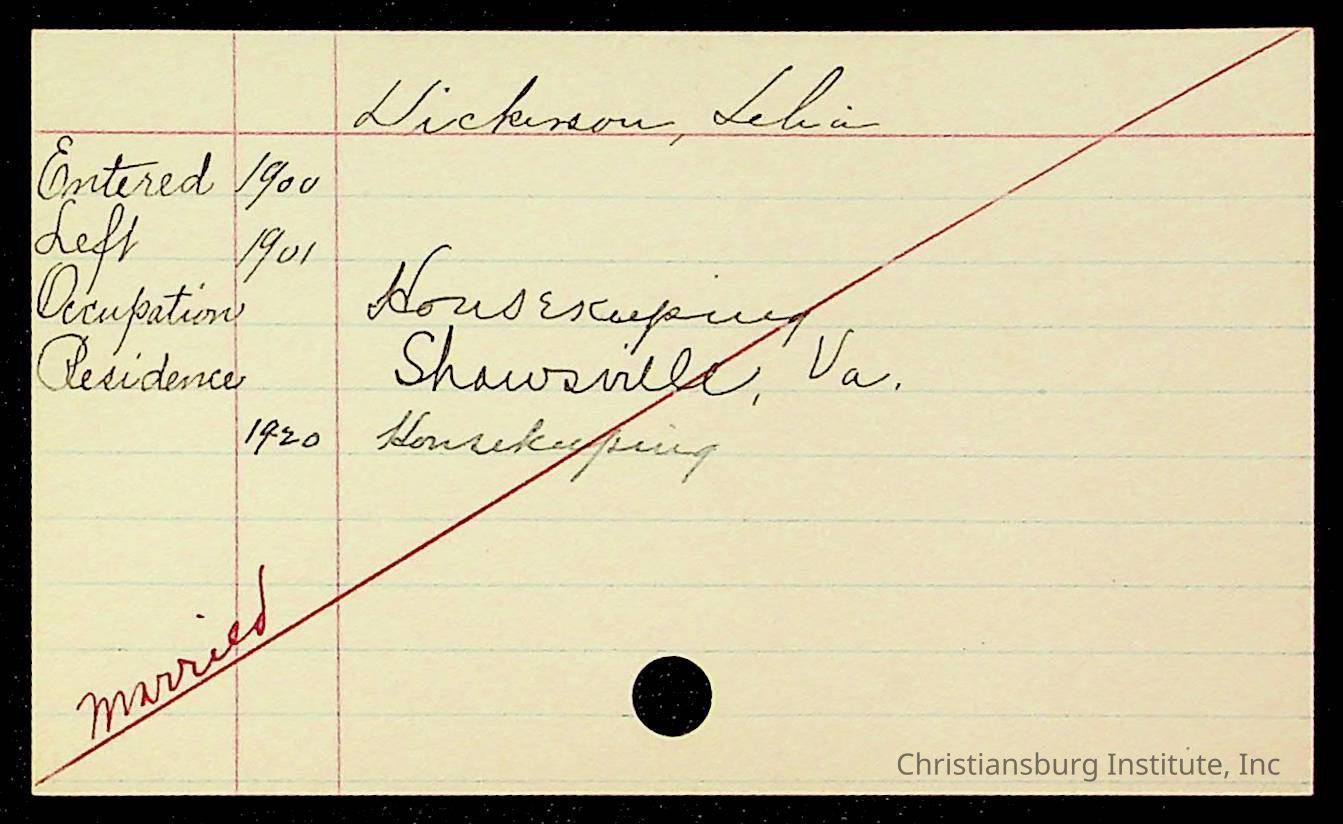 Dickerson, Lelia
Entered 1900
Left 1901
Occupation Housekeeping
Residence Shawsville, Va.
1920 Housekeeping
Married
Christiansburg Institute, Inc